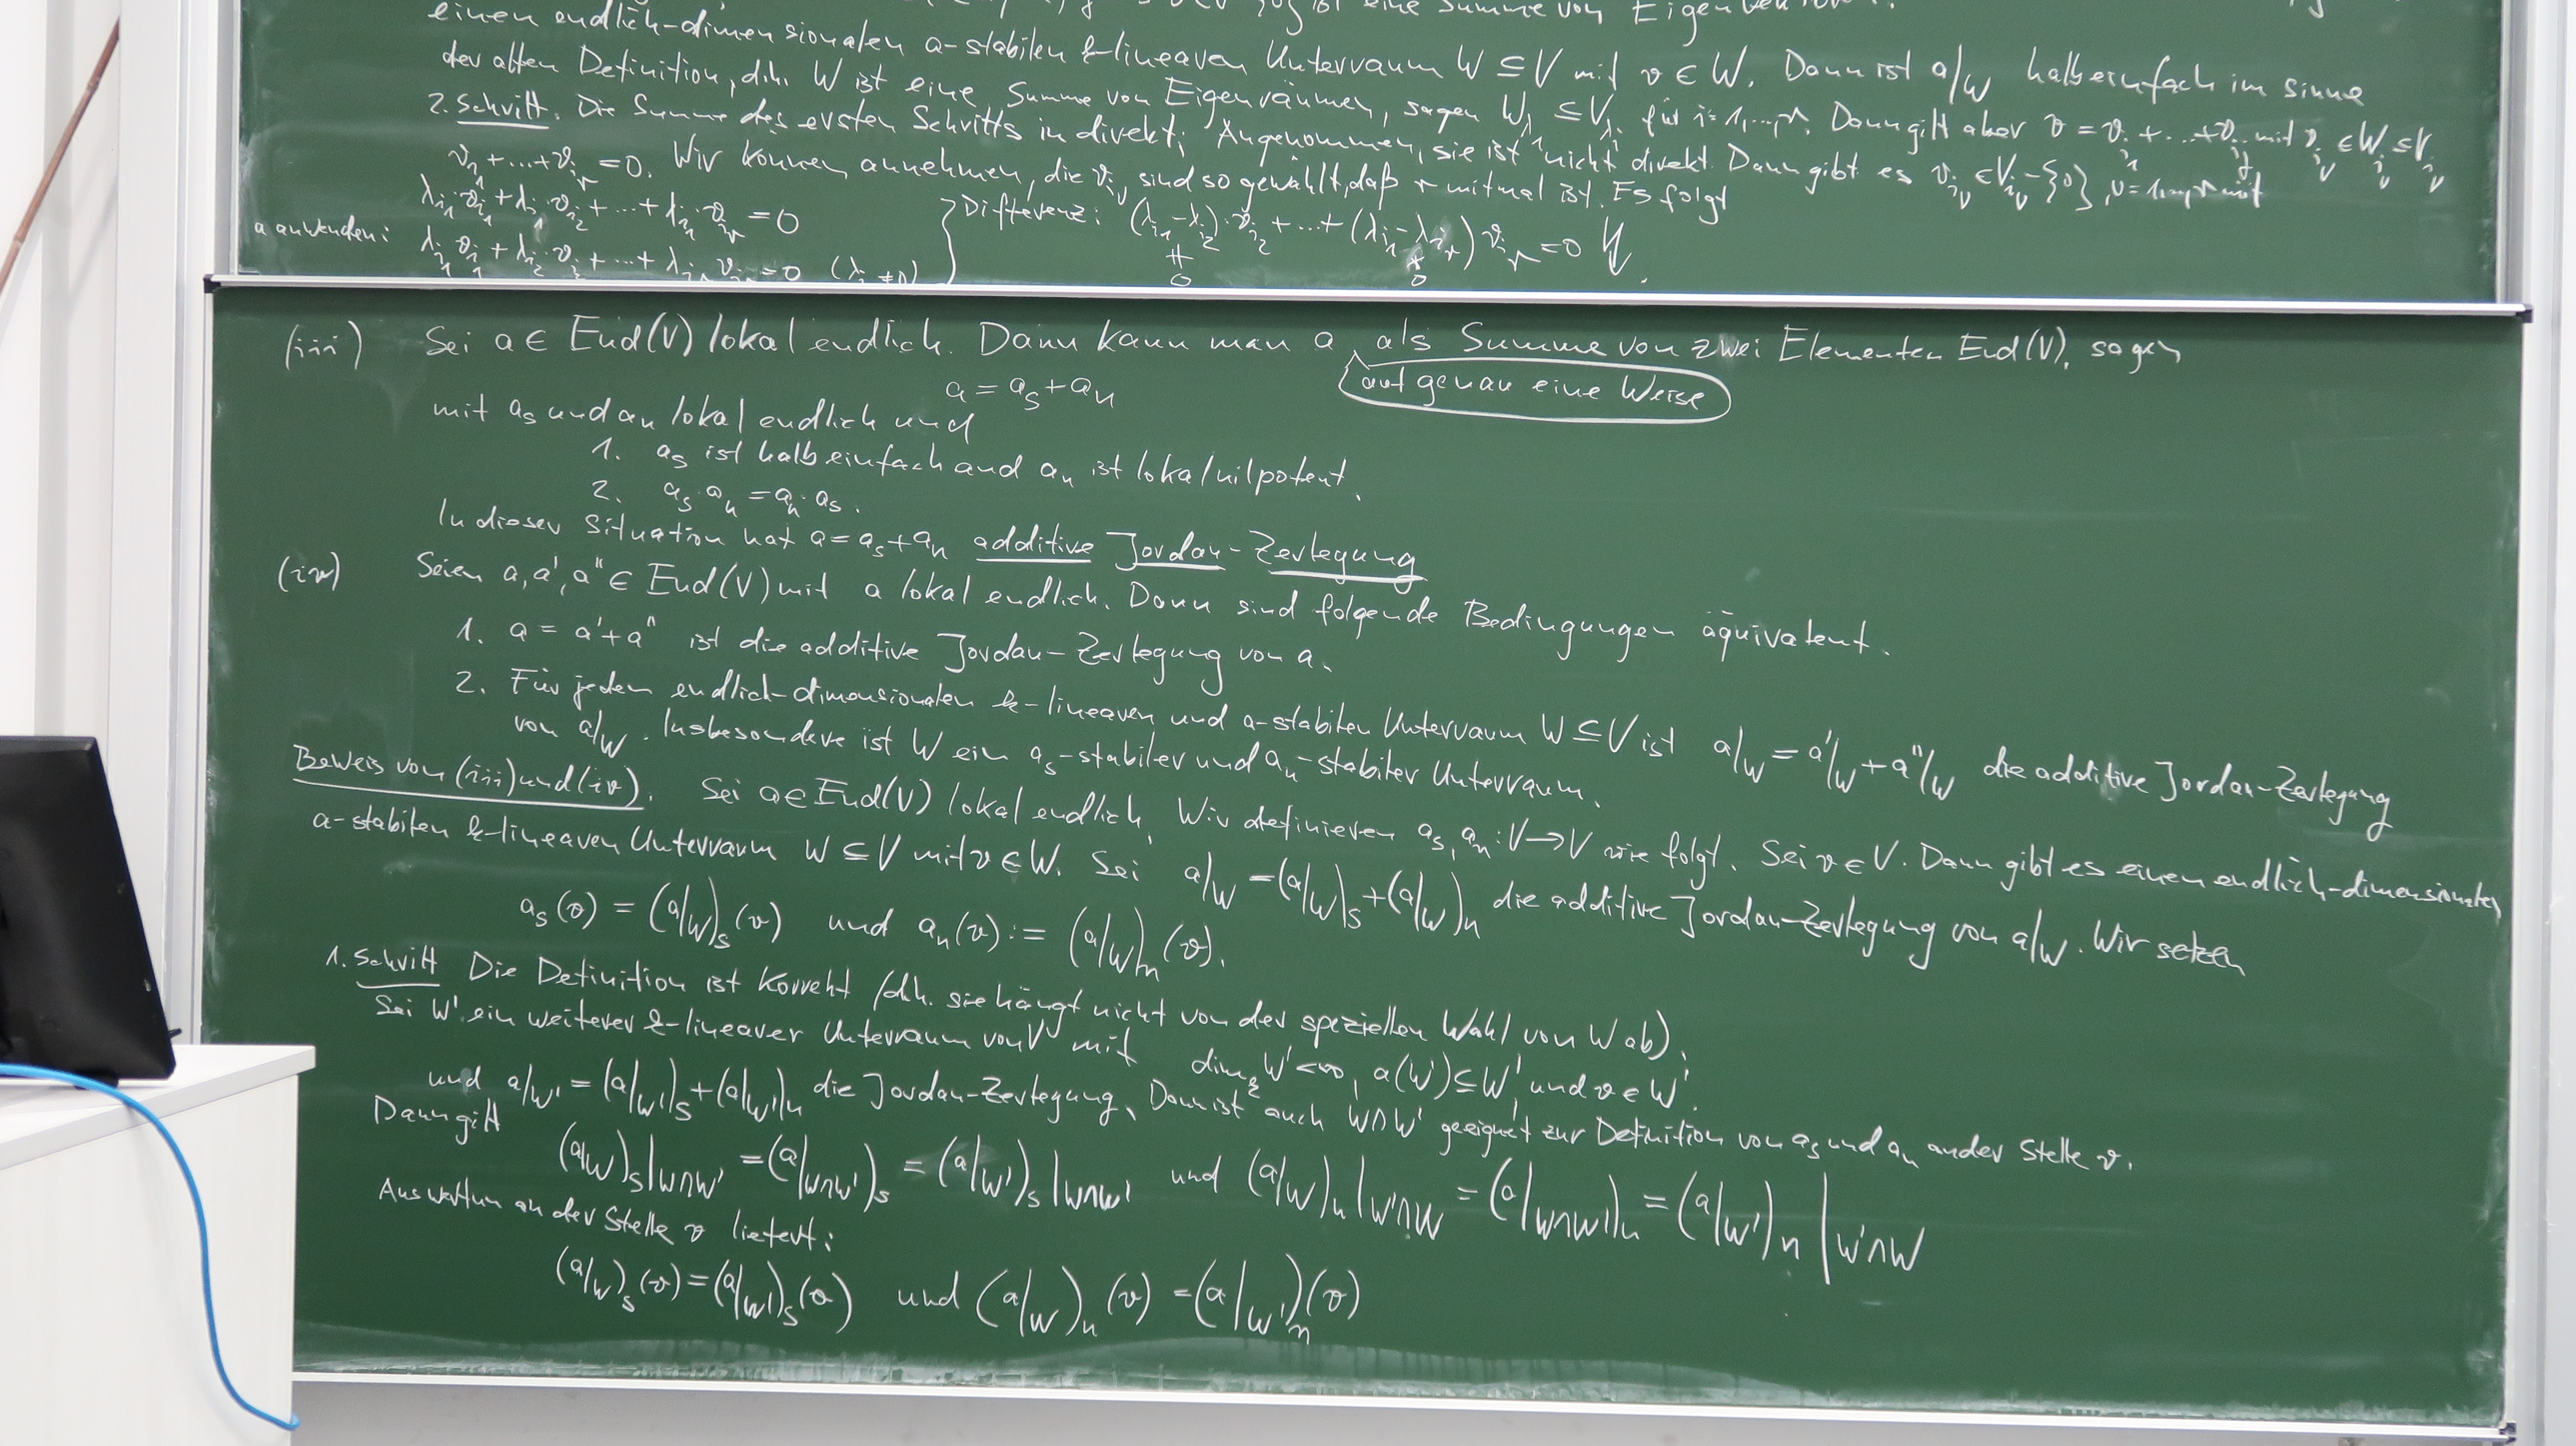 ist eine Summe von
einen endlich-dimensionalen a-stabilen k-linearen Unterraum W ⊆ V mit v ∈ W. Dann ist a|_W halbeinfach im Sinne
der alten Definition, d.h. W ist eine Summe von Eigenräumen, sagen W_{λ_i} ⊆ V_{λ_i} für i=1,...,r. Dann gilt aber v = v_{i_1}+...+v_{i_r} mit v_{i_ν} ∈ W_{i_ν} ⊆ V_{i_ν}
2. Schritt. Die Summe des ersten Schritts in direkt: Angenommen, sie ist nicht direkt. Dann gibt es v_{i_ν} ∈ V_{i_ν} - {0}, ν=1,...,r mit
v_{i_1}+...+v_{i_r} = 0. Wir können annehmen, die v_{i_ν} sind so gewählt, daß r minimal ist. Es folgt
λ_{i_1}·v_{i_1} + λ_{i_1}·v_{i_2} + ... + λ_{i_1}·v_{i_r} = 0
a anwenden: λ_{i_1} v_{i_1} + λ_{i_2}·v_{i_2} + ... + λ_{i_r} v_{i_r} = 0 (λ_i ≠ 0) } Differenz: (λ_{i_1}-λ_{i_2})·v_{i_2} + ... + (λ_{i_1}-λ_{i_r}) v_{i_r} = 0
≠ 0 ≠ 0
(iii) Sei a ∈ End(V) lokal endlich. Dann kann man a auf genau eine Weise als Summe von zwei Elementen End(V), sagen
a = a_s + a_n
mit a_s und a_n lokal endlich und
1. a_s ist halbeinfach and a_n ist lokal nilpotent.
2. a_s·a_n = a_n·a_s.
In dieser Situation hat a = a_s + a_n additive Jordan-Zerlegung
(iv) Seien a, a', a'' ∈ End(V) mit a lokal endlich. Dann sind folgende Bedingungen äquivalent.
1. a = a' + a'' ist die additive Jordan-Zerlegung von a.
2. Für jeden endlich-dimensionalen k-linearen und a-stabilen Unterraum W ⊆ V ist a|_W = a'|_W + a''|_W die additive Jordan-Zerlegung
von a|_W. Insbesondere ist W ein a_s-stabiler und a_n-stabiler Unterraum.
Beweis von (iii) und (iv). Sei a ∈ End(V) lokal endlich. Wir definieren a_s, a_n : V → V wie folgt. Sei v ∈ V. Dann gibt es einen endlich-dimensionalen
a-stabilen k-linearen Unterraum W ⊆ V mit v ∈ W. Sei a|_W = (a|_W)_s + (a|_W)_n die additive Jordan-Zerlegung von a|_W. Wir setzen
a_s(v) = (a|_W)_s(v) und a_n(v) := (a|_W)_n(v).
1. Schritt Die Definition ist korrekt (d.h. sie hängt nicht von der speziellen Wahl von W ab).
Sei W' ein weiterer k-linearer Unterraum von V mit dim_k W' < ∞, a(W') ⊆ W' und v ∈ W'.
und a|_{W'} = (a|_{W'})_s + (a|_{W'})_n die Jordan-Zerlegung. Dann ist auch W∩W' geeignet zur Definition von a_s und a_n an der Stelle v.
Dann gilt
(a|_W)_s|_{W∩W'} = (a|_{W∩W'})_s = (a|_{W'})_s|_{W∩W'} und (a|_W)_n|_{W'∩W} = (a|_{W∩W'})_n = (a|_{W'})_n|_{W'∩W}
Auswerten an der Stelle v liefert:
(a|_W)_s(v) = (a|_{W'})_s(v) und (a|_W)_n(v) = (a|_{W'})_n(v)